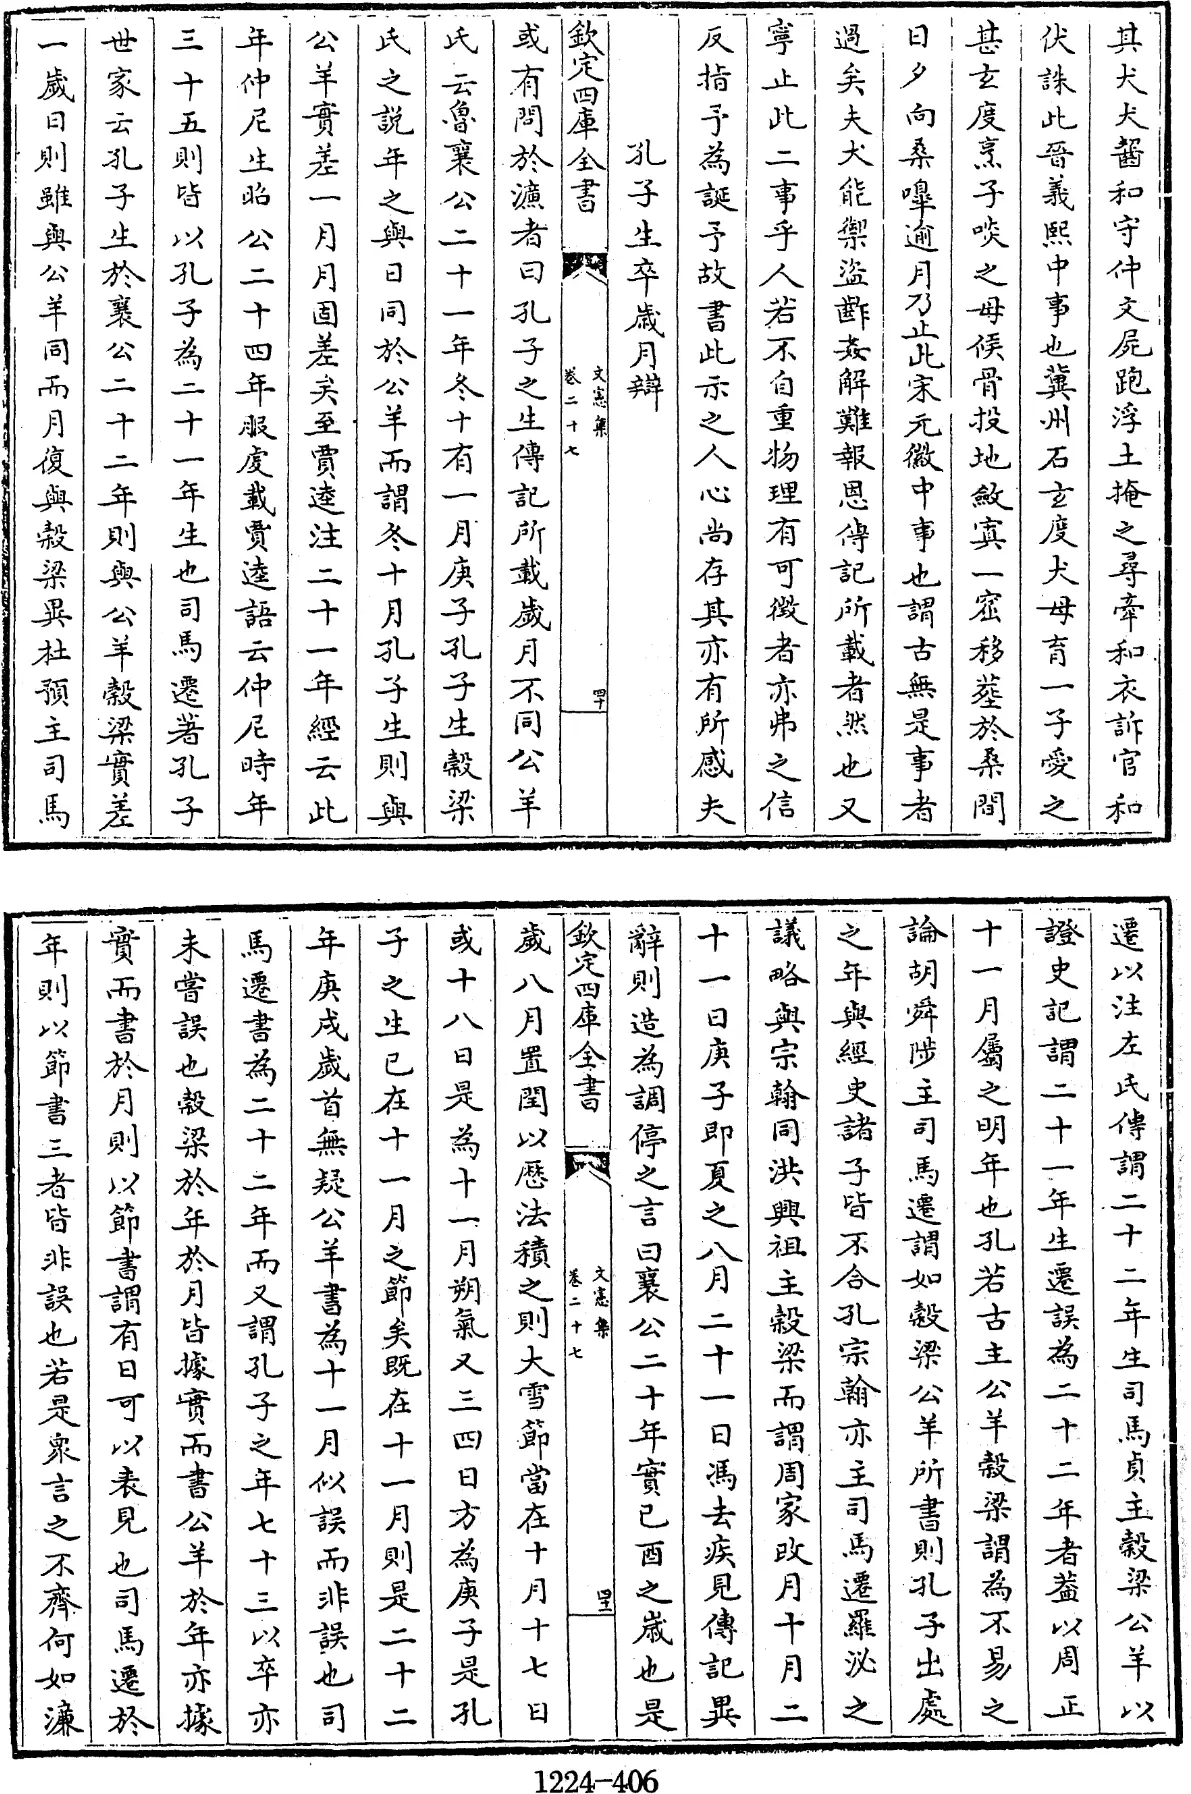 其犬犬齧和守仲文屍跑浮土掩之尋牽和衣訴官和
伏誅此晉義熙中事也冀州石玄度犬母育一子愛之
甚玄度烹子啖之母候骨投地斂寘一窋移葬於桑間
日夕向桑嘷逾月乃止此宋元徽中事也謂古無是事者
過矣夫犬能禦盜齚姦解難報恩傳記所載者然也又
寧止此二事乎人若不自重物理有可徴者亦弗之信
反指予為誕予故書此示之人心尚存其亦有所感夫
孔子生卒歲月辯
欽定四庫全書
文憲集
卷二十七
四十
或有問於濂者曰孔子之生傳記所載歲月不同公羊
氏云魯襄公二十一年冬十有一月庚子孔子生穀梁
氏之説年之與日同於公羊而謂冬十月孔子生則與
公羊實差一月月固差矣至賈逵注二十一年經云此
年仲尼生昭公二十四年服虔載賈逵語云仲尼時年
三十五則皆以孔子為二十一年生也司馬遷著孔子
世家云孔子生於襄公二十二年則與公羊穀梁實差
一歲曰則雖與公羊同而月復與穀梁異杜預主司馬
遷以注左氏傳謂二十二年生司馬貞主穀梁公羊以
證史記謂二十一年生遷誤為二十二年者葢以周正
十一月屬之明年也孔若古主公羊穀梁謂為不易之
論胡舜陟主司馬遷謂如穀梁公羊所書則孔子出處
之年與經史諸子皆不合孔宗翰亦主司馬遷羅泌之
議略與宗翰同洪興祖主穀梁而謂周家改月十月二
十一日庚子即夏之八月二十一日馮去疾見傳記異
辭則造為調停之言曰襄公二十年實已酉之歲也是
欽定四庫全書
文憲集
卷二十七
四十一
歲八月置閏以厯法積之則大雪節當在十月十七日
或十八日是為十一月朔氣又三四日方為庚子是孔
子之生已在十一月之節矣既在十一月則是二十二
年庚戌歲首無疑公羊書為十一月似誤而非誤也司
馬遷書為二十二年而又謂孔子之年七十三以卒亦
未嘗誤也穀梁於年於月皆據實而書公羊於年亦據
實而書於月則以節書謂有日可以表見也司馬遷於
年則以節書三者皆非誤也若是衆言之不齊何如濂
1224-406